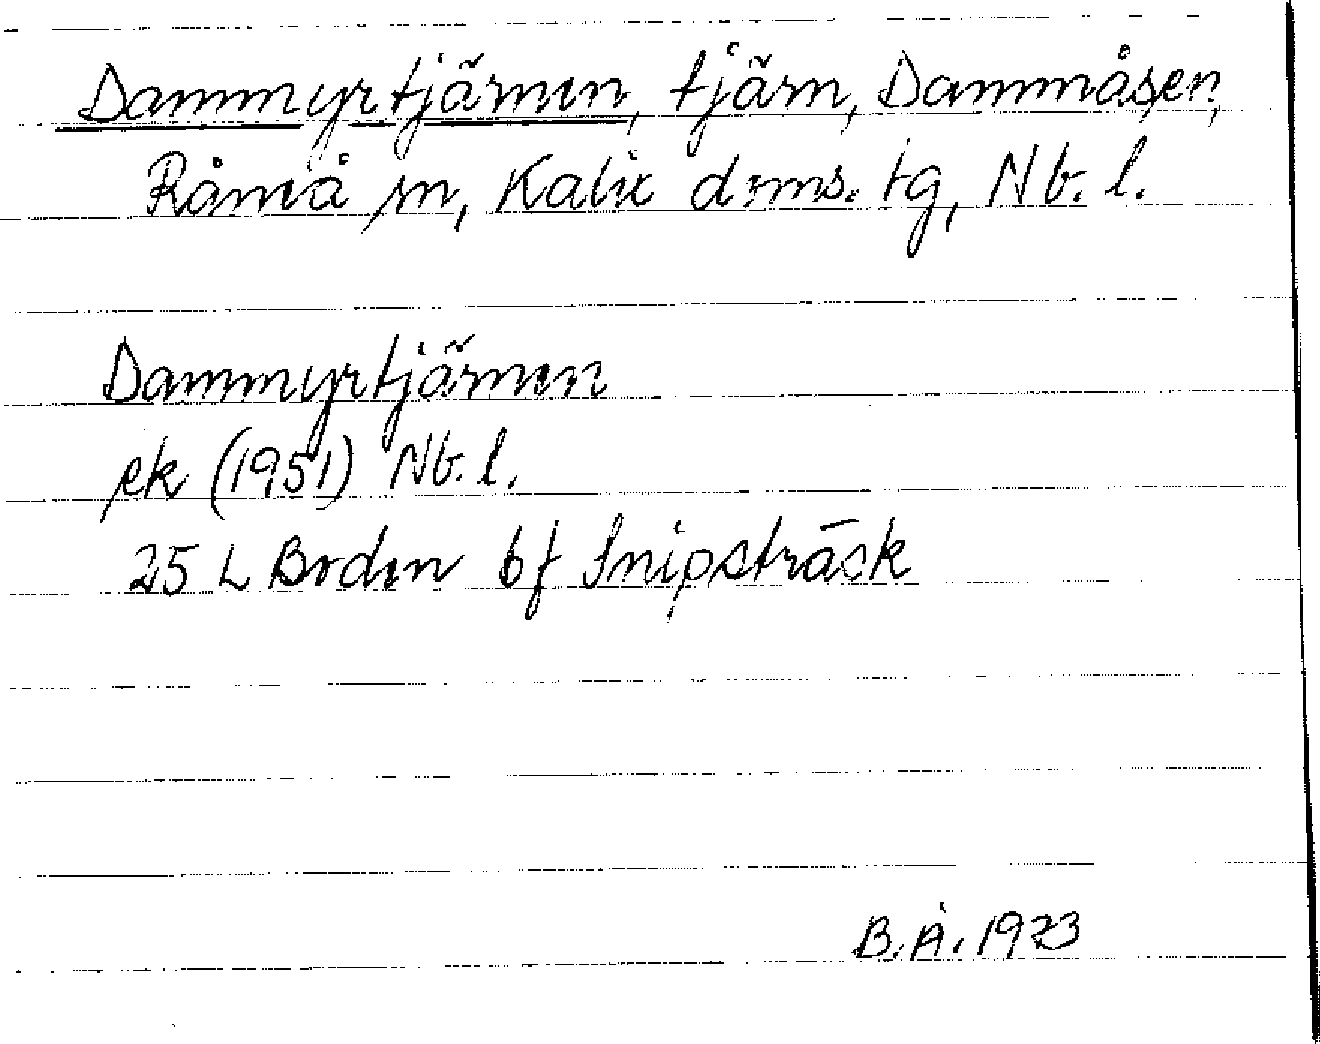 Dammyrtjärnen, tjärn, Dammåsen,
Råneå sn, Kalix doms. tg, Nb. l.
Dammyrtjärnen
ek (1951) Nb. l.
25 L Boden bf Snipsträsk
B.Å. 1973